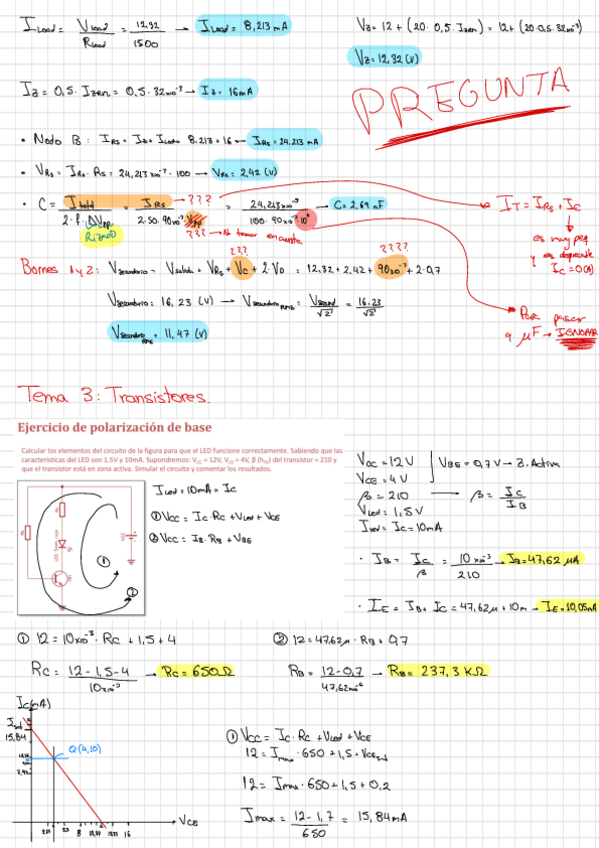 I_Load = V_Load / R_Load = 12,32 / 1500 → I_Load = 8,213 mA
V_Z = 12 + (20 · 0,5 · I_ZRM) = 12 + (20·0,5·32x10⁻³)
V_Z = 12,32 (V)
I_Z = 0,5 · I_ZRM = 0,5 · 32x10⁻³ → I_Z = 16 mA
PREGUNTA
• Nodo B: I_RS = I_Z + I_Load = 8.213 + 16 → I_RS = 24,213 mA
• V_RS = I_RS · R_S = 24,213x10⁻³ · 100 → V_RS = 2,42 (V)
• C = I_total / 2·f·ΔV_pp = I_RS / 2·50·90x10⁻³ = 24,213x10⁻³ / 100·90x10⁻³·10⁶ → C = 2,69 nF
???
Rizado
??? No tener en cuenta
I_T = I_RS + I_C
es muy peq
y es despreciable
I_C = 0 (A)
??? ????
Bornes 1 y 2: V_secundario = V_salida = V_RS + V_C + 2·V_D = 12,32 + 2,42 + 90x10⁻³ + 2·0,7
V_secundario = 16,23 (V) → V_secundario RMS = V_secund / √2 = 16.23 / √2
Para pasar
a μF → IGNORAR
V_secundario RMS = 11,47 (V)
Tema 3: Transistores.
Ejercicio de polarización de base
Calcular los elementos del circuito de la figura para que el LED funcione correctamente. Sabiendo que las
características del LED son 1.5V y 10mA. Supondremos: V_CC = 12V, V_CE = 4V, β (h_FE) del transistor = 210 y
que el transistor está en zona activa. Simular el circuito y comentar los resultados.
I_Led = 10mA = I_C
① V_CC = I_C · R_C + V_Led + V_CE
② V_CC = I_B · R_B + V_BE
V_CC = 12 V
V_BE = 0,7 V → Z. Activa
V_CE = 4 V
β = 210 → β = I_C / I_B
V_Led = 1,5 V
I_Led = I_C = 10 mA
• I_B = I_C / β = 10x10⁻³ / 210 → I_B = 47,62 μA
• I_E = I_B + I_C = 47,62μ + 10m → I_E = 10,05mA
① 12 = 10x10⁻³ · R_C + 1,5 + 4
② 12 = 47,62μ · R_B + 0,7
R_C = 12 - 1,5 - 4 / 10x10⁻³ → R_C = 650 Ω
R_B = 12 - 0,7 / 47,62x10⁻⁶ → R_B = 237,3 KΩ
I_C (mA)
I_sat
15,84
Q (4,10)
V_CE
① V_CC = I_C · R_C + V_Led + V_CE
12 = I_max · 650 + 1,5 + V_CE sat
12 = I_max · 650 + 1,5 + 0,2
I_max = 12 - 1,7 / 650 = 15,84 mA